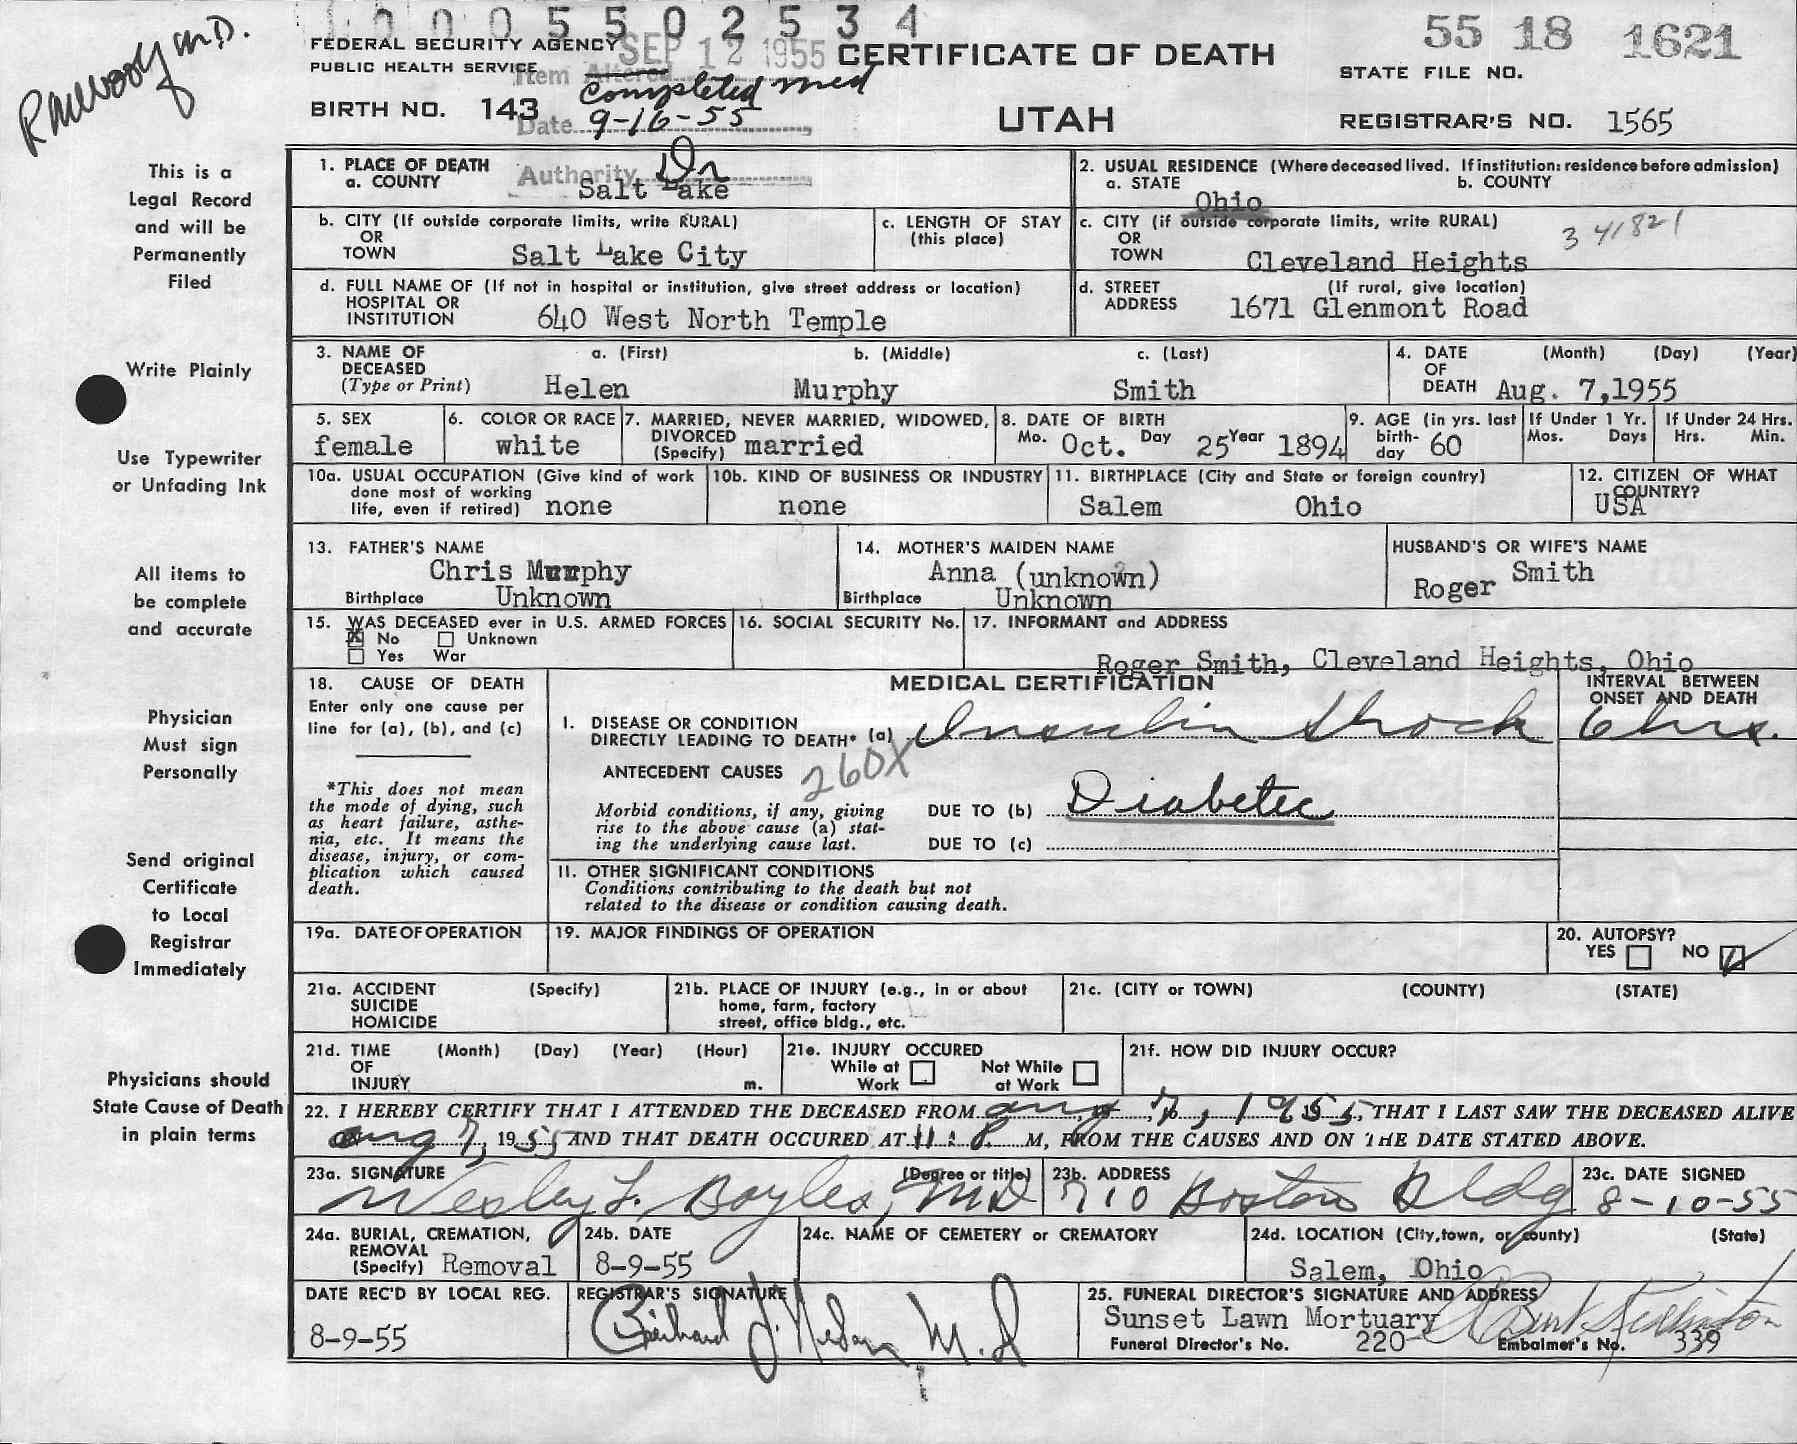 0005502534
55 18 1621
FEDERAL SECURITY AGENCY SEP 12 1955 CERTIFICATE OF DEATH
PUBLIC HEALTH SERVICE Item Altered
STATE FILE NO.
Completed med
BIRTH NO. 143 Date 9-16-55 UTAH REGISTRAR'S NO. 1565
This is a
Legal Record
and will be
Permanently
Filed
Write Plainly
Use Typewriter
or Unfading Ink
All items to
be complete
and accurate
Physician
Must sign
Personally
Send original
Certificate
to Local
Registrar
Immediately
Physicians should
State Cause of Death
in plain terms
1. PLACE OF DEATH
a. COUNTY Authority Dr Salt Lake
2. USUAL RESIDENCE (Where deceased lived. If institution: residence before admission)
a. STATE Ohio b. COUNTY
b. CITY (If outside corporate limits, write RURAL)
OR
TOWN Salt Lake City
c. LENGTH OF STAY
(this place)
c. CITY (if outside corporate limits, write RURAL)
OR
TOWN Cleveland Heights
3 41821
d. FULL NAME OF (If not in hospital or institution, give street address or location)
HOSPITAL OR
INSTITUTION 640 West North Temple
d. STREET (If rural, give location)
ADDRESS 1671 Glenmont Road
3. NAME OF a. (First) b. (Middle) c. (Last)
DECEASED
(Type or Print) Helen Murphy Smith
4. DATE (Month) (Day) (Year)
OF
DEATH Aug. 7,1955
5. SEX
female
6. COLOR OR RACE
white
7. MARRIED, NEVER MARRIED, WIDOWED,
DIVORCED
(Specify) married
8. DATE OF BIRTH
Mo. Oct. Day 25 Year 1894
9. AGE (in yrs. last
birth-
day 60
If Under 1 Yr.
Mos. Days
If Under 24 Hrs.
Hrs. Min.
10a. USUAL OCCUPATION (Give kind of work
done most of working
life, even if retired) none
10b. KIND OF BUSINESS OR INDUSTRY
none
11. BIRTHPLACE (City and State or foreign country)
Salem Ohio
12. CITIZEN OF WHAT
COUNTRY?
USA
13. FATHER'S NAME
Chris Murphy
Birthplace Unknown
14. MOTHER'S MAIDEN NAME
Anna (unknown)
Birthplace Unknown
HUSBAND'S OR WIFE'S NAME
Roger Smith
15. WAS DECEASED ever in U.S. ARMED FORCES
No Unknown
Yes War
16. SOCIAL SECURITY No.
17. INFORMANT and ADDRESS
Roger Smith, Cleveland Heights, Ohio
18. CAUSE OF DEATH
Enter only one cause per
line for (a), (b), and (c)
*This does not mean
the mode of dying, such
as heart failure, asthe-
nia, etc. It means the
disease, injury, or com-
plication which caused
death.
MEDICAL CERTIFICATION
INTERVAL BETWEEN
ONSET AND DEATH
I. DISEASE OR CONDITION
DIRECTLY LEADING TO DEATH* (a) Insulin Shock 6 hrs.
ANTECEDENT CAUSES 260X
Morbid conditions, if any, giving
rise to the above cause (a) stat-
ing the underlying cause last.
DUE TO (b) Diabetic
DUE TO (c)
11. OTHER SIGNIFICANT CONDITIONS
Conditions contributing to the death but not
related to the disease or condition causing death.
19a. DATE OF OPERATION
19. MAJOR FINDINGS OF OPERATION
20. AUTOPSY?
YES NO
21a. ACCIDENT (Specify)
SUICIDE
HOMICIDE
21b. PLACE OF INJURY (e.g., in or about
home, farm, factory
street, office bldg., etc.
21c. (CITY or TOWN) (COUNTY) (STATE)
21d. TIME (Month) (Day) (Year) (Hour)
OF
INJURY m.
21e. INJURY OCCURED
While at Work
Not While at Work
21f. HOW DID INJURY OCCUR?
22. I HEREBY CERTIFY THAT I ATTENDED THE DECEASED FROM Aug 7, 1955, THAT I LAST SAW THE DECEASED ALIVE
Aug 7, 1955 AND THAT DEATH OCCURED AT M, FROM THE CAUSES AND ON THE DATE STATED ABOVE.
23a. SIGNATURE (Degree or title)
Wesley L. Bayles, MD
23b. ADDRESS
710 Boston Bldg
23c. DATE SIGNED
8-10-55
24a. BURIAL, CREMATION,
REMOVAL
(Specify) Removal
24b. DATE
8-9-55
24c. NAME OF CEMETERY or CREMATORY
24d. LOCATION (City, town, or county) (State)
Salem, Ohio
DATE REC'D BY LOCAL REG.
8-9-55
REGISTRAR'S SIGNATURE
M.D.
25. FUNERAL DIRECTOR'S SIGNATURE AND ADDRESS
Sunset Lawn Mortuary
Funeral Director's No. 220 Embalmer's No. 339